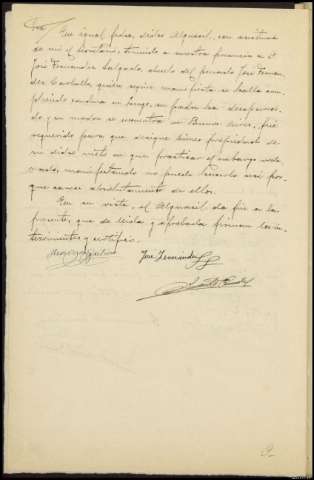 En igual fecha, dicho Alguacil, con asistencia
de mi el Secretario, teniendo a nuestra presencia a D.
José Fernández Salgado, abuelo del penado José Fernán-
dez Carballo, quien según manifiesta se halla cum-
pliendo condena en Luego, su padre ha desapareci-
do, y su madre se encuentra en Buenos Aires, fué
requerido para que designe bienes propiedad de
su dicho nieto en que practicar el embargo orde-
nado, manifestando no puede hacerlo así por-
que carece absolutamente de ellos.
En su vista, el Alguacil da fin a la
presente, que de leída y aprobada firman los in-
tervinientes y certifico.
José Fernández